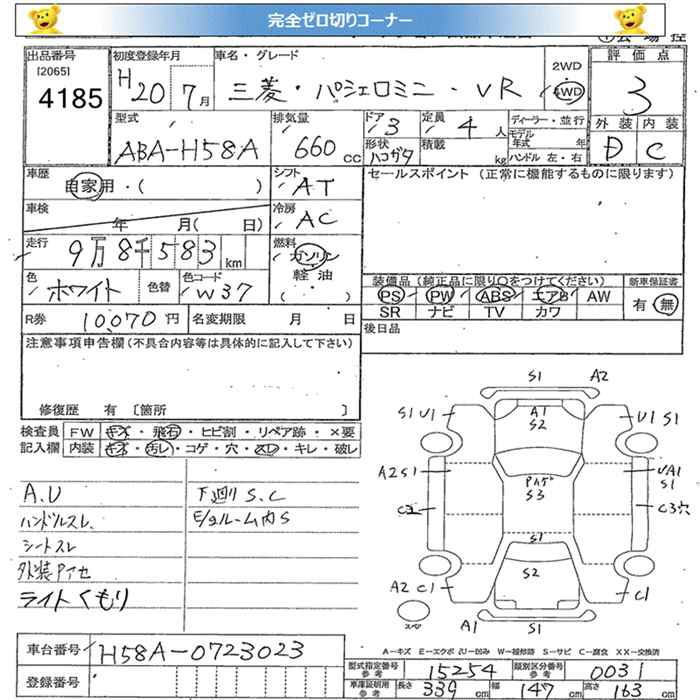 完全ゼロ切りコーナー
出品番号 [2065] 4185
初度登録年月 H20 7月
車名・グレード 三菱・パジェロミニ・VR
2WD 4WD
評価点 3
型式 ABA-H58A
排気量 660 cc
ドア 3
形状 ハコガタ
定員 4人
積載 kg
ディーラー・並行
モデル年式 年式
ハンドル 左・右
外装 内装
D C
車歴 自家用・( )
シフト AT
セールスポイント (正常に機能するものに限ります)
車検 年 月( 日)
冷房 AC
走行 9万8千583 km
燃料 ガソリン 軽油 ( )
色 ホワイト 色替
色コード W37
装備品(純正品に限り○をつけてください) 新車保証書
PS PW ABS エアB AW 有・無
SR ナビ TV カワ
R券 10,070円 名変期限 月 日
後日品
注意事項申告欄(不具合内容等は具体的に記入して下さい)
修復歴 有 [箇所 ]
検査員 FW キズ・飛石・ヒビ割・リペア跡・×要
記入欄 内装 キズ・汚レ・コゲ・穴・スレ・キレ・破レ
A.U 下廻りS.C
ハンドルスレ E/gルーム内S
シートスレ
外装アセ
ライトくもり
S1 A2
S1 U1 A1 S2 U1 S1
A2 S1 S3 S1
C3穴
S1
S2
A2 C1 C1
スペア A1 S1
A-キズ E-エクボ U-凹み W-補修跡 S-サビ C-腐食 XX-交換済
車台番号 H58A-0723023
型式指定番号 参考 15254 類別区分番号 参考 0031
登録番号
車庫証明用 参考 長さ 339cm 幅 147cm 高さ 163cm